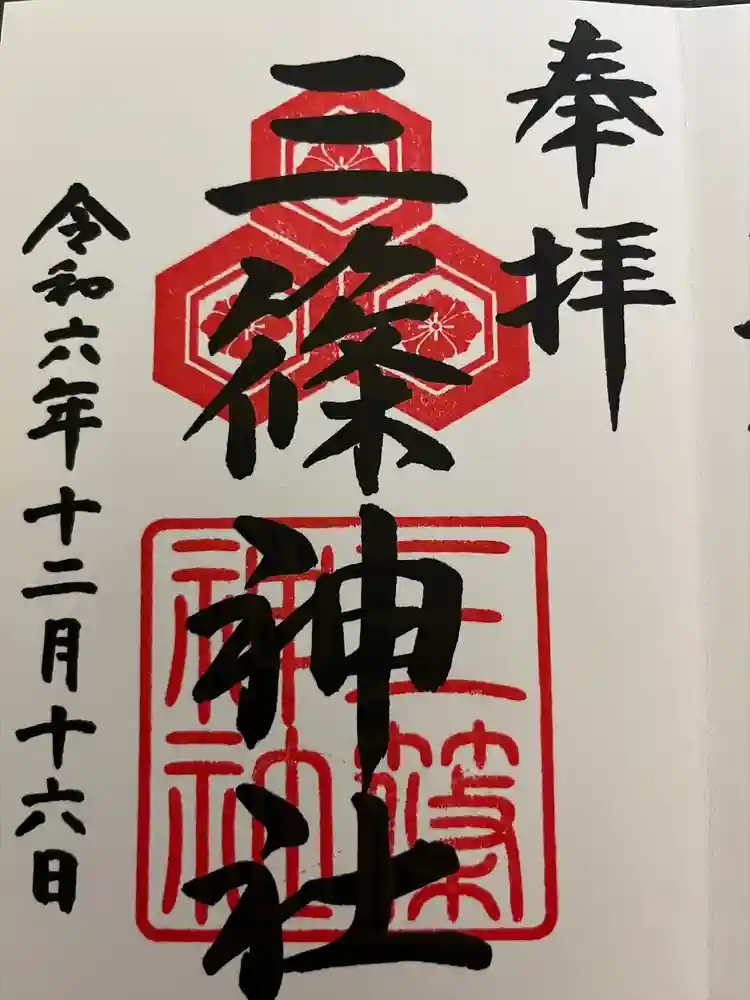 奉拝
三篠神社
令和六年十二月十六日
三篠神社